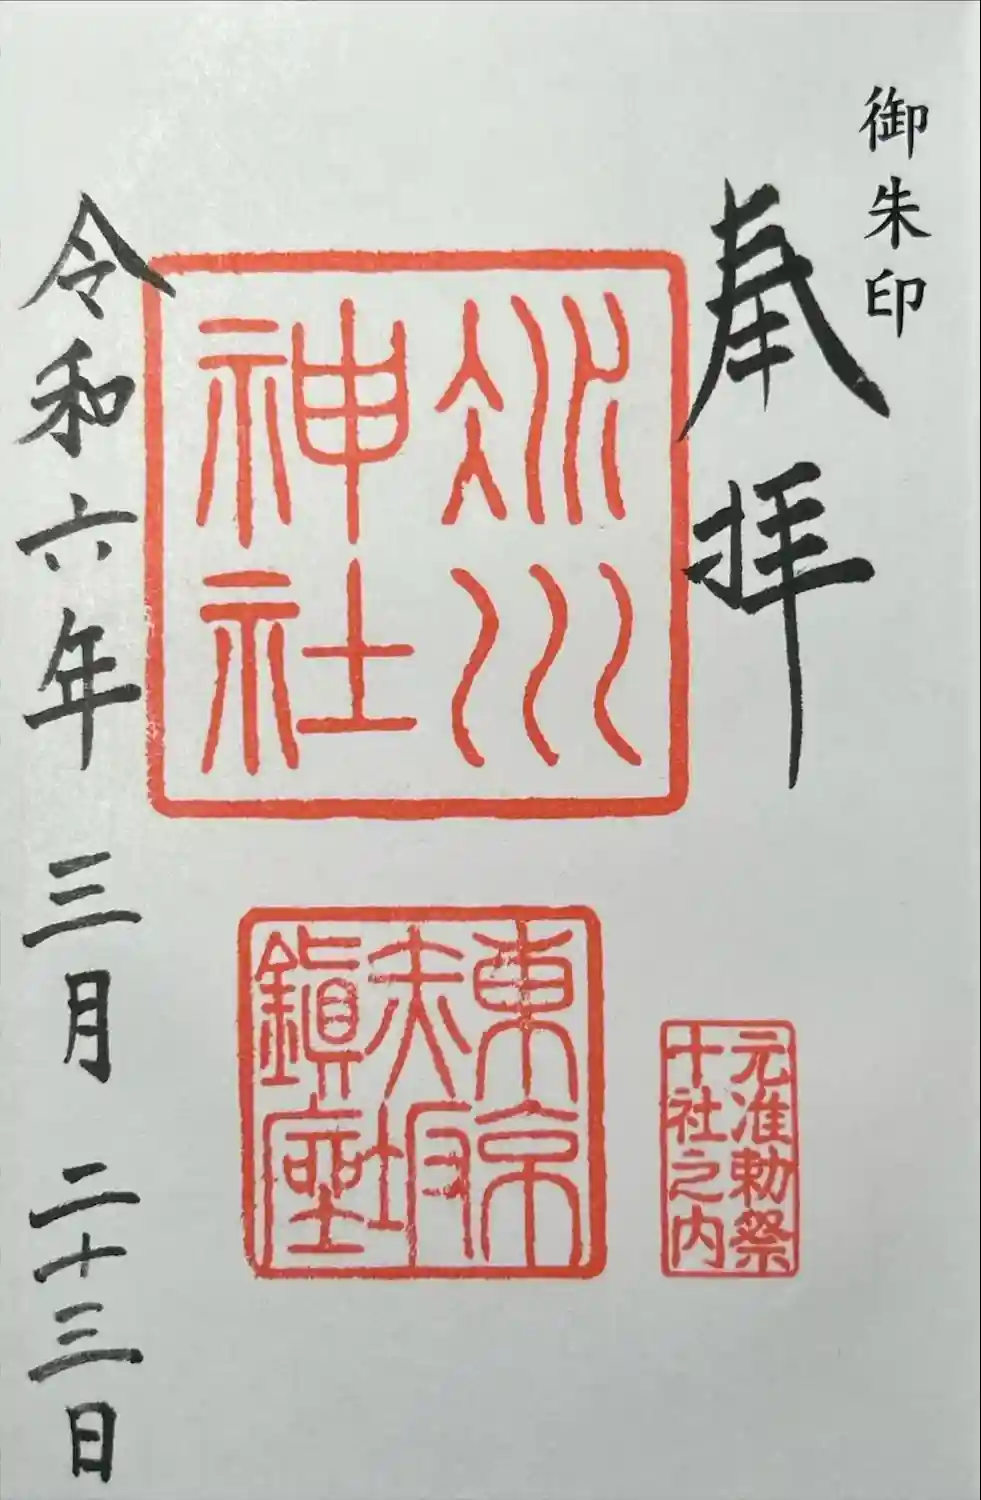 御朱印
奉拝
氷川
神社
東京
赤坂
鎮座
元准勅祭
十社之内
令和六年 三月 二十三日